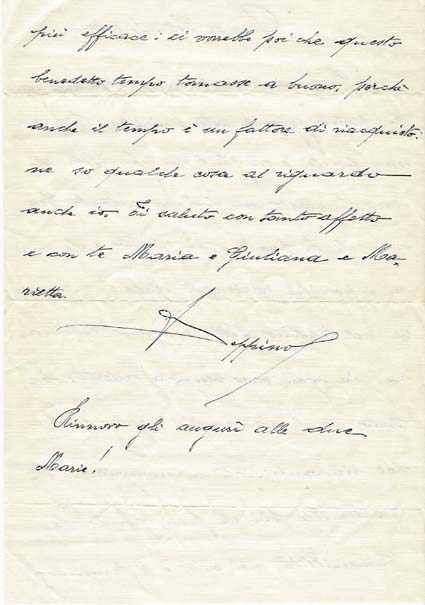 più efficace: ci vorrebbe poi che questo
benedetto tempo tornasse a buono, perchè
anche il tempo è un fattore di riacquisto:
ne so qualche cosa al riguardo
anche io. Ti saluto con tanto affetto
e con te Maria e Giuliana e Ma-
rietta.
Peppino
Rinnovo gli auguri alle due
Marie!